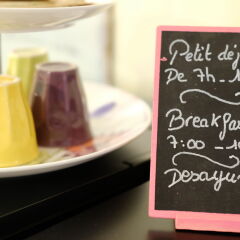 Petit déj
De 7h_1
Breakfas
7:00_1
Desayu